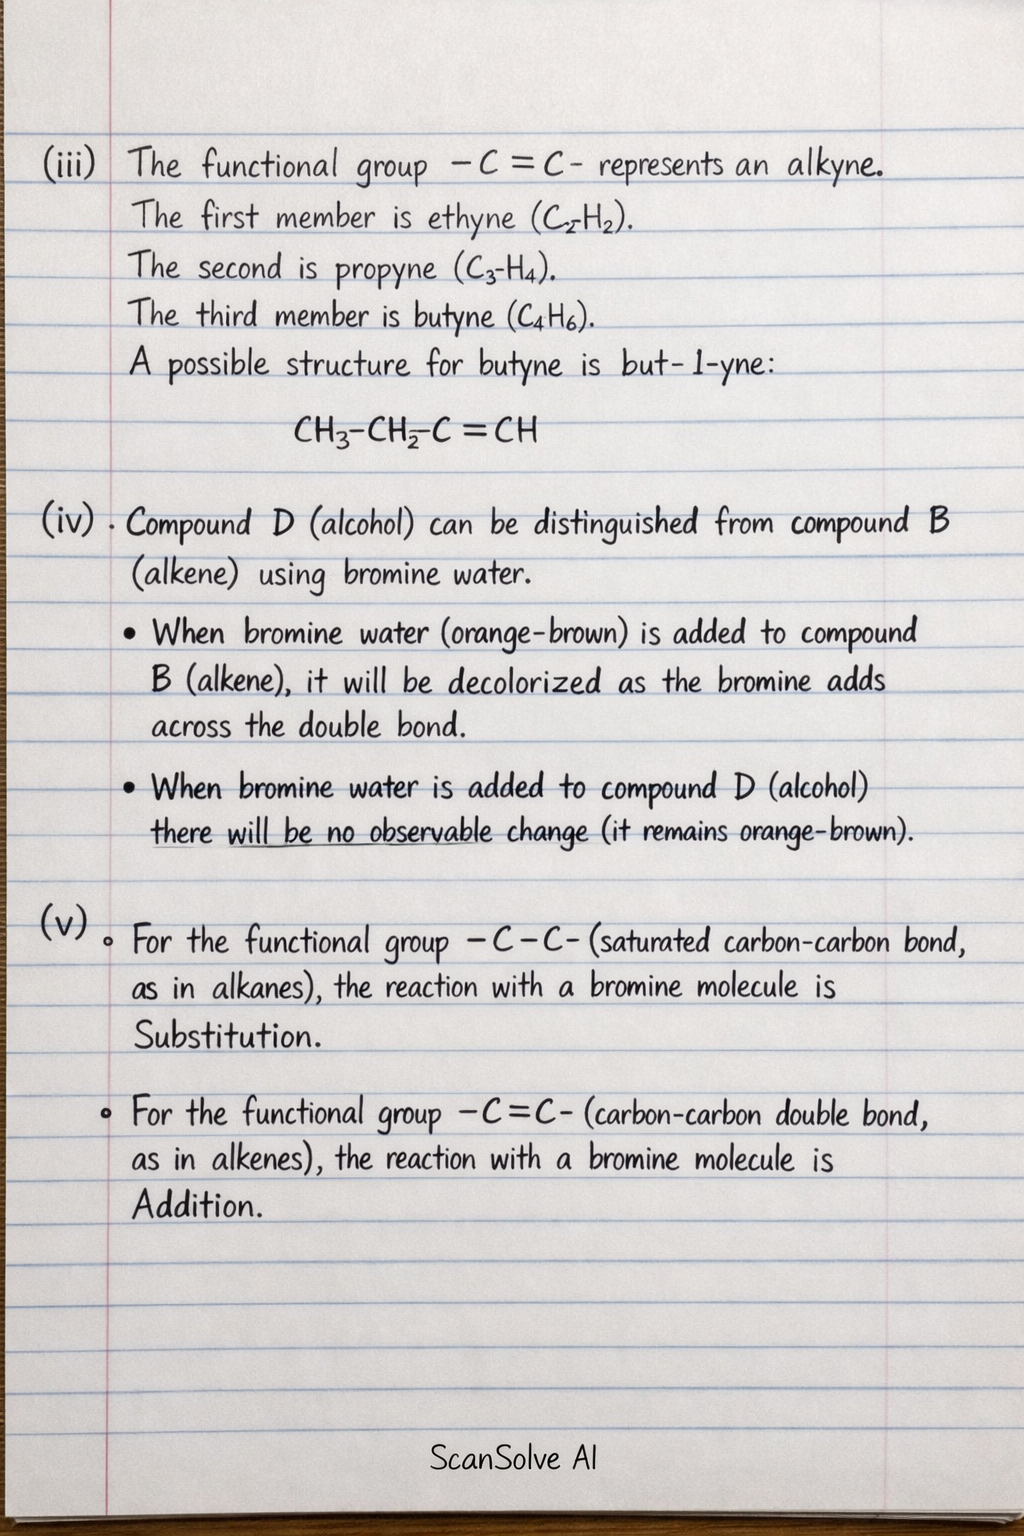 (iii) The functional group －C = C- represents an alkyne.
The first member is ethyne (C₂H₂).
The second is propyne (C₃-H₄).
The third member is butyne (C₄H₆).
A possible structure for butyne is but-1-yne:
CH₃-CH₂-C = CH
(iv) · Compound D (alcohol) can be distinguished from compound B
(alkene) using bromine water.
• When bromine water (orange-brown) is added to compound
B (alkene), it will be decolorized as the bromine adds
across the double bond.
• When bromine water is added to compound D (alcohol)
there will be no observable change (it remains orange-brown).
(v) ∘ For the functional group －C－C- (saturated carbon-carbon bond,
as in alkanes), the reaction with a bromine molecule is
Substitution.
∘ For the functional group －C=C- (carbon-carbon double bond,
as in alkenes), the reaction with a bromine molecule is
Addition.
ScanSolve AI